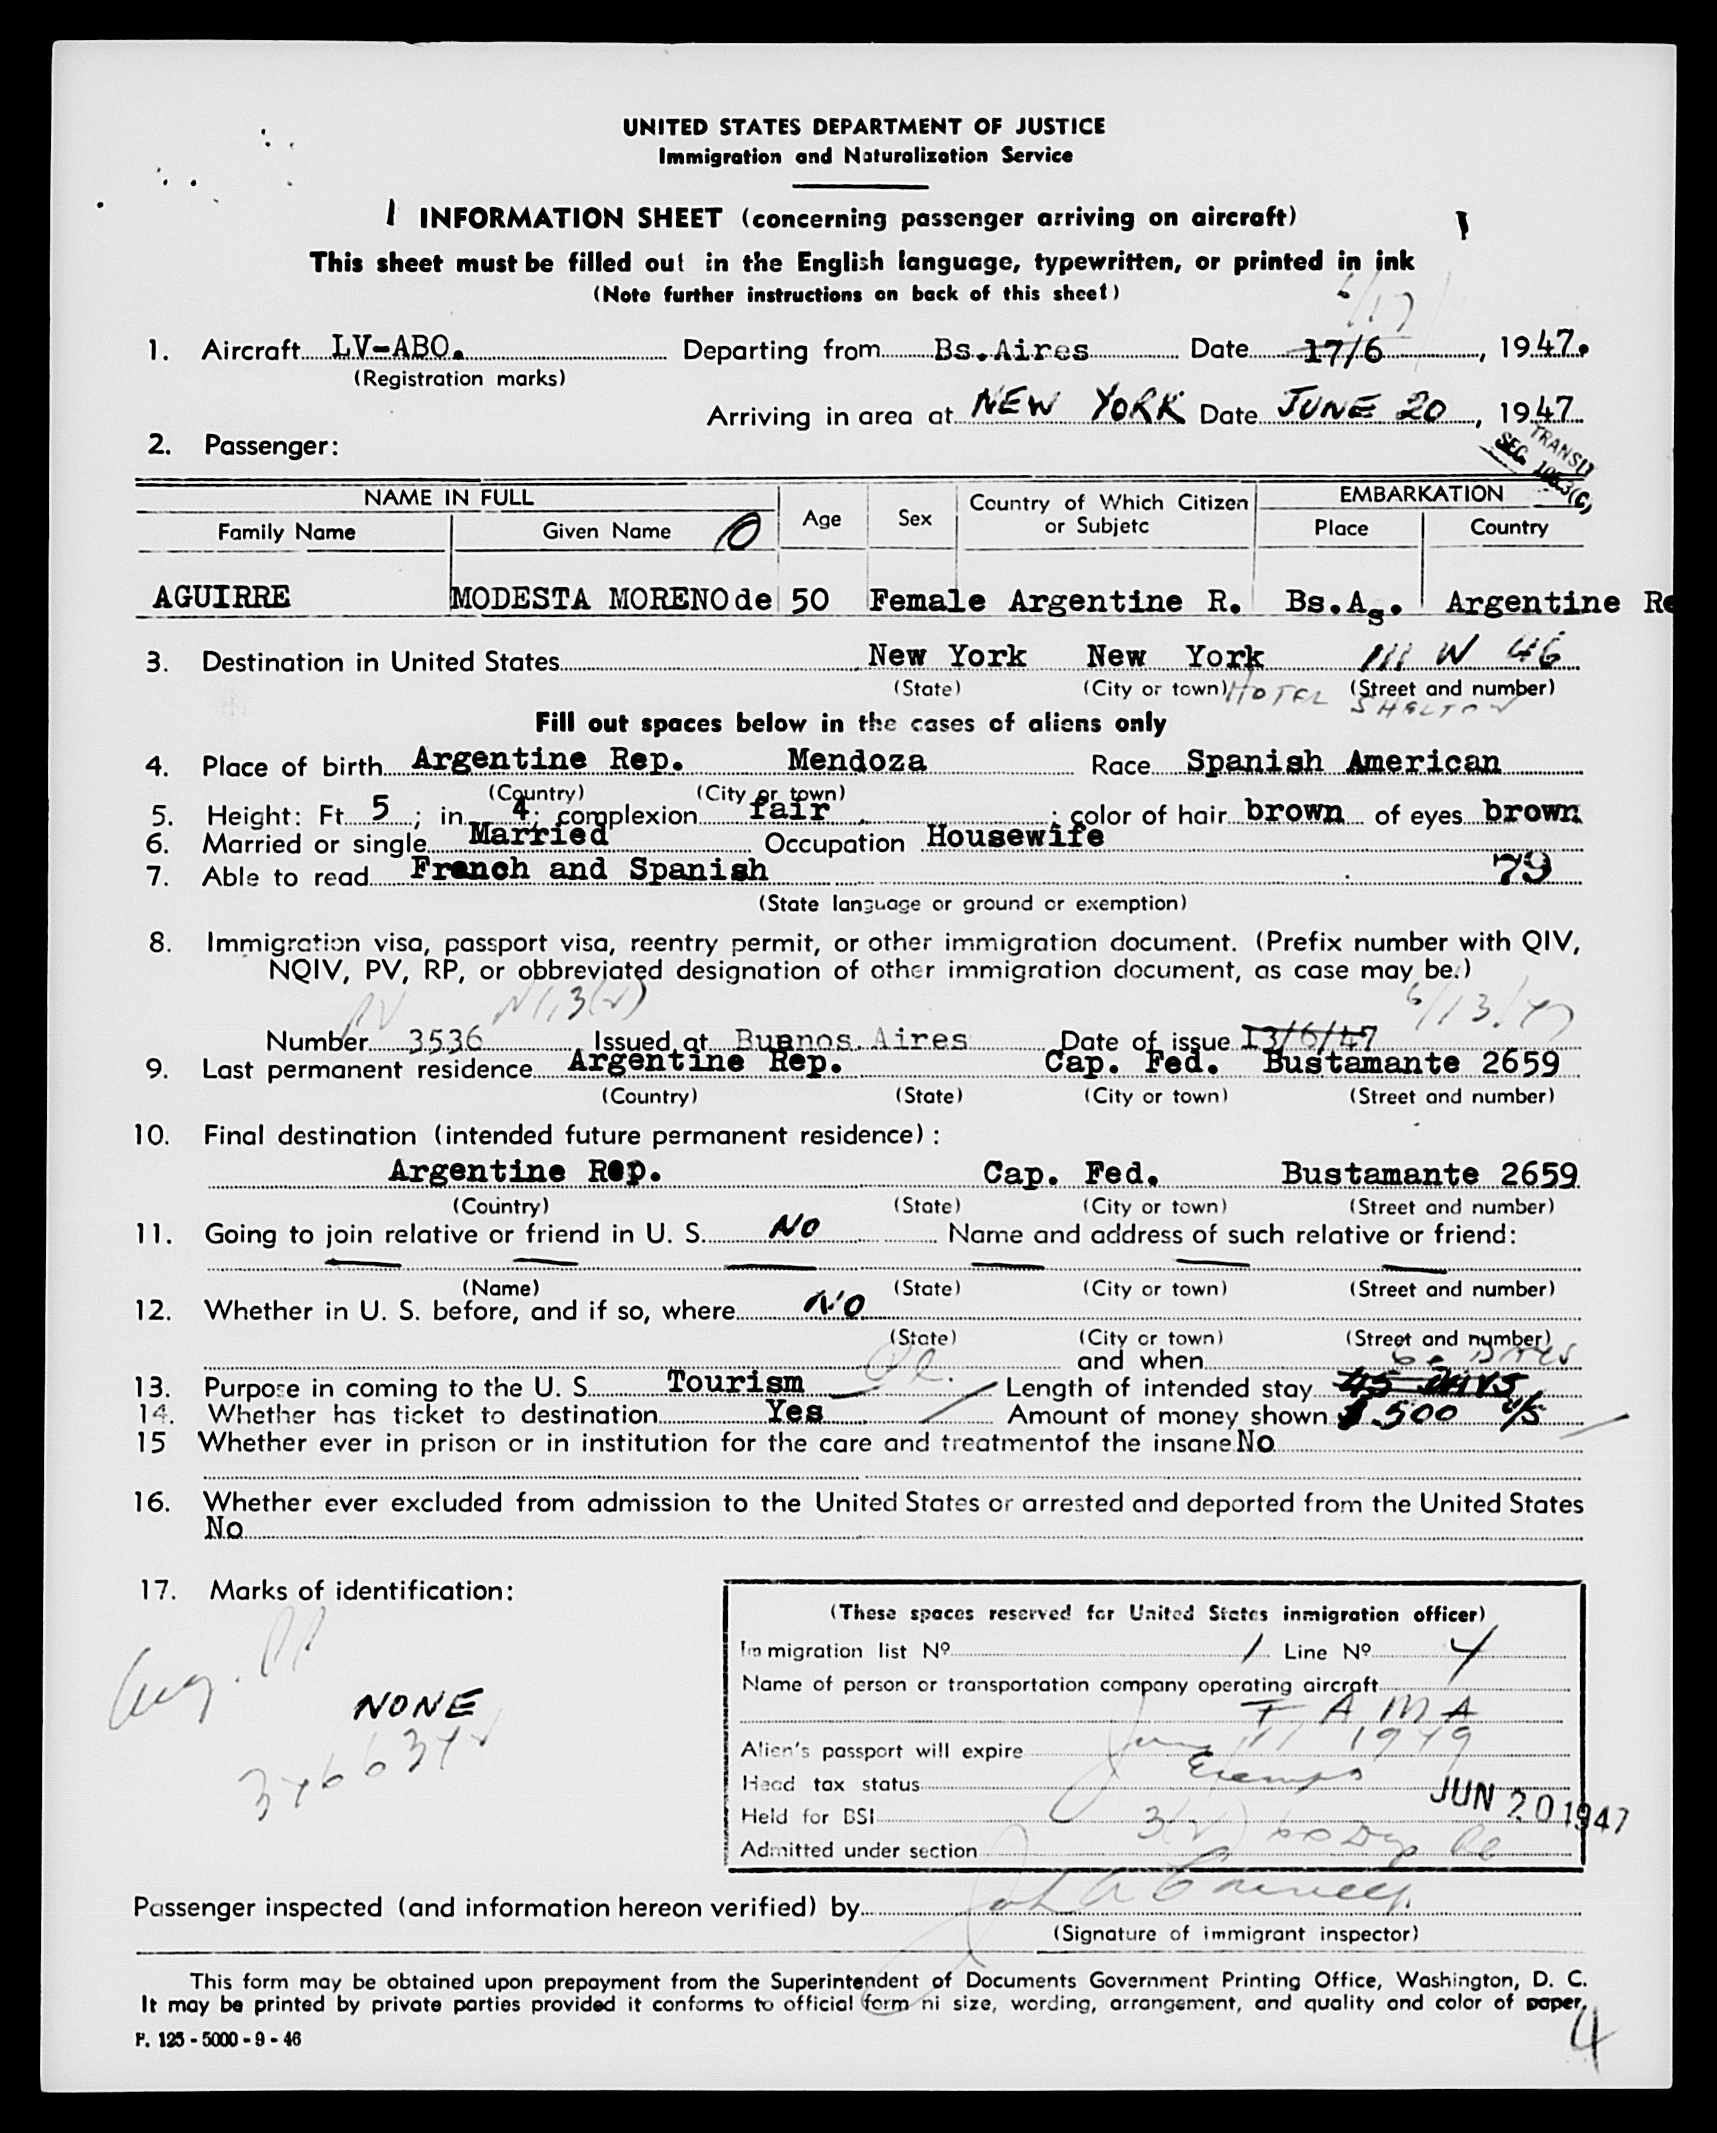 UNITED STATES DEPARTMENT OF JUSTICE
Immigration and Naturalization Service
INFORMATION SHEET (concerning passenger arriving on aircraft)
This sheet must be filled out in the English language, typewritten, or printed in ink
(Note further instructions on back of this sheet)
6/17
1. Aircraft LV-ABO. Departing from Bs.Aires Date 17/6, 1947.
(Registration marks)
Arriving in area at NEW YORK Date JUNE 20, 1947
2. Passenger:
TRANSIT
SEC.
NAME IN FULL Age Sex Country of Which Citizen or Subjetc EMBARKATION
Family Name Given Name Place Country
AGUIRRE MODESTA MORENO de 50 Female Argentine R. Bs.As. Argentine Re
3. Destination in United States New York New York 111 W 46
(State) (City or town) HOTEL (Street and number)
SHELTON
Fill out spaces below in the cases of aliens only
4. Place of birth Argentine Rep. Mendoza Race Spanish American
(Country) (City or town)
5. Height: Ft. 5; in. 4; complexion fair; color of hair brown of eyes brown
6. Married or single Married Occupation Housewife
7. Able to read French and Spanish 79
(State language or ground or exemption)
8. Immigration visa, passport visa, reentry permit, or other immigration document. (Prefix number with QIV,
NQIV, PV, RP, or obbreviated designation of other immigration document, as case may be.)
PV 6/13/47
Number 3536 Issued at Buenos Aires Date of issue 13/6/47
9. Last permanent residence Argentine Rep. Cap. Fed. Bustamante 2659
(Country) (State) (City or town) (Street and number)
10. Final destination (intended future permanent residence) :
Argentine Rep. Cap. Fed. Bustamante 2659
(Country) (State) (City or town) (Street and number)
11. Going to join relative or friend in U. S. NO Name and address of such relative or friend:
(Name) (State) (City or town) (Street and number)
12. Whether in U. S. before, and if so, where NO
(State) (City or town) (Street and number)
and when
60 DAYS
13. Purpose in coming to the U. S. Tourism Length of intended stay 45 DAYS
14. Whether has ticket to destination Yes Amount of money shown $ 500
15 Whether ever in prison or in institution for the care and treatmentof the insane No
16. Whether ever excluded from admission to the United States or arrested and deported from the United States
No
17. Marks of identification:
NONE
(These spaces reserved for United States inmigration officer)
Immigration list Nº 1 Line Nº 4
Name of person or transportation company operating aircraft
F A M A
Alien's passport will expire June 11 1949
Head tax status Exempt
JUN 20 1947
Held for BSI
Admitted under section 3(2) 60 Dys
Passenger inspected (and information hereon verified) by
(Signature of immigrant inspector)
This form may be obtained upon prepayment from the Superintendent of Documents Government Printing Office, Washington, D. C.
It may be printed by private parties provided it conforms to official form ni size, wording, arrangement, and quality and color of paper.
F. 125 - 5000 - 9 - 46
4